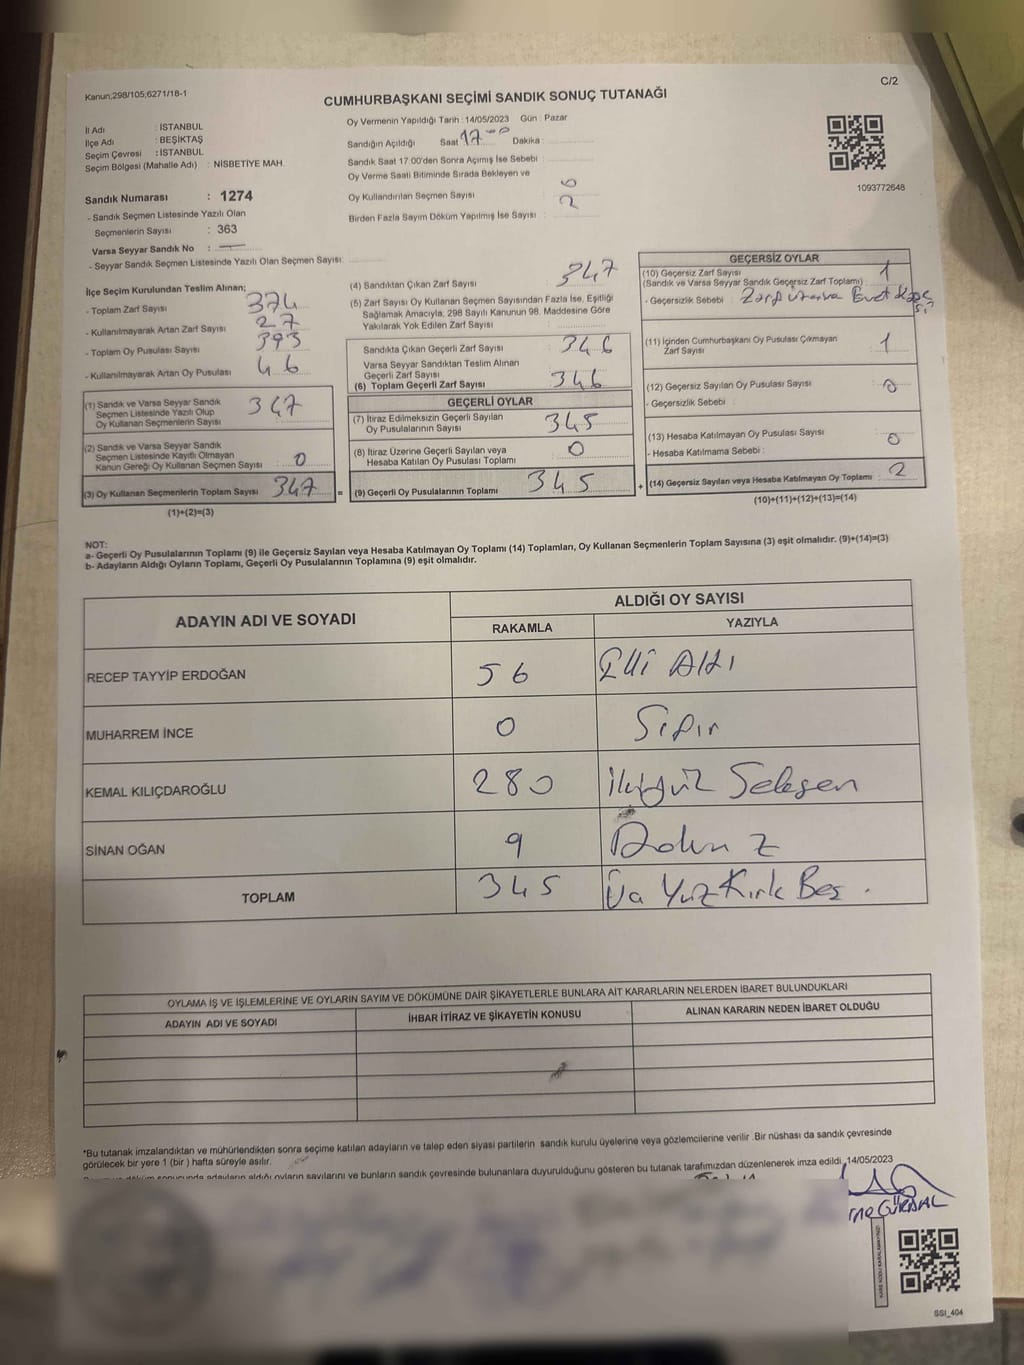 Kanun;298/105;6271/18-1
C/2
CUMHURBAŞKANI SEÇİMİ SANDIK SONUÇ TUTANAĞI
İl Adı : İSTANBUL
İlçe Adı : BEŞİKTAŞ
Seçim Çevresi : İSTANBUL
Seçim Bölgesi (Mahalle Adı) : NİSBETİYE MAH.
Sandık Numarası : 1274
- Sandık Seçmen Listesinde Yazılı Olan
Seçmenlerin Sayısı : 363
Varsa Seyyar Sandık No : —
- Seyyar Sandık Seçmen Listesinde Yazılı Olan Seçmen Sayısı:
Oy Vermenin Yapıldığı Tarih : 14/05/2023 Gün : Pazar
Sandığın Açıldığı Saat 17 00 Dakika :
Sandık Saat 17.00'den Sonra Açımış İse Sebebi :
Oy Verme Saati Bitiminde Sırada Bekleyen ve
Oy Kullandırılan Seçmen Sayısı : 0
Birden Fazla Sayım Döküm Yapılmış İse Sayısı : 2
1093772648
İlçe Seçim Kurulundan Teslim Alınan;
- Toplam Zarf Sayısı : 374
- Kullanılmayarak Artan Zarf Sayısı : 27
- Toplam Oy Pusulası Sayısı : 393
- Kullanılmayarak Artan Oy Pusulası : 46
(1) Sandık ve Varsa Seyyar Sandık
Seçmen Listesinde Yazılı Olup
Oy Kullanan Seçmenlerin Sayısı : 347
(2) Sandık ve Varsa Seyyar Sandık
Seçmen Listesinde Kayıtlı Olmayan
Kanun Gereği Oy Kullanan Seçmen Sayısı : 0
(3) Oy Kullanan Seçmenlerin Toplam Sayısı : 347
(1)+(2)=(3)
(4) Sandıktan Çıkan Zarf Sayısı : 347
(5) Zarf Sayısı Oy Kullanan Seçmen Sayısından Fazla İse, Eşitliği
Sağlamak Amacıyla, 298 Sayılı Kanunun 98. Maddesine Göre
Yakılarak Yok Edilen Zarf Sayısı :
Sandıkta Çıkan Geçerli Zarf Sayısı : 346
Varsa Seyyar Sandıktan Teslim Alınan
Geçerli Zarf Sayısı
(6) Toplam Geçerli Zarf Sayısı : 346
GEÇERLİ OYLAR
(7) İtiraz Edilmeksizin Geçerli Sayılan
Oy Pusulalarının Sayısı : 345
(8) İtiraz Üzerine Geçerli Sayılan veya
Hesaba Katılan Oy Pusulası Toplamı : 0
= (9) Geçerli Oy Pusulalarının Toplamı : 345
GEÇERSİZ OYLAR
(10) Geçersiz Zarf Sayısı
(Sandık ve Varsa Seyyar Sandık Geçersiz Zarf Toplamı) : 1
- Geçersizlik Sebebi : Zarf Üzerine Evet
(11) İçinden Cumhurbaşkanı Oy Pusulası Çıkmayan
Zarf Sayısı : 1
(12) Geçersiz Sayılan Oy Pusulası Sayısı : 0
- Geçersizlik Sebebi :
(13) Hesaba Katılmayan Oy Pusulası Sayısı : 0
- Hesaba Katılmama Sebebi :
+ (14) Geçersiz Sayılan veya Hesaba Katılmayan Oy Toplamı : 2
(10)+(11)+(12)+(13)=(14)
NOT:
a- Geçerli Oy Pusulalarının Toplamı (9) ile Geçersiz Sayılan veya Hesaba Katılmayan Oy Toplamı (14) Toplamları, Oy Kullanan Seçmenlerin Toplam Sayısına (3) eşit olmalıdır. (9)+(14)=(3)
b- Adayların Aldığı Oyların Toplamı, Geçerli Oy Pusulalarının Toplamına (9) eşit olmalıdır.
ADAYIN ADI VE SOYADI
ALDIĞI OY SAYISI
RAKAMLA YAZIYLA
RECEP TAYYİP ERDOĞAN 56 Elli Altı
MUHARREM İNCE 0 Sıfır
KEMAL KILIÇDAROĞLU 280 İkiyüz Seksen
SİNAN OĞAN 9 Dokuz
TOPLAM 345 Üç Yüz Kırk Beş .
OYLAMA İŞ VE İŞLEMLERİNE VE OYLARIN SAYIM VE DÖKÜMÜNE DAİR ŞİKAYETLERLE BUNLARA AİT KARARLARIN NELERDEN İBARET BULUNDUKLARI
ADAYIN ADI VE SOYADI İHBAR İTİRAZ VE ŞİKAYETİN KONUSU ALINAN KARARIN NEDEN İBARET OLDUĞU
*Bu tutanak imzalandıktan ve mühürlendikten sonra seçime katılan adayların ve talep eden siyasi partilerin sandık kurulu üyelerine veya gözlemcilerine verilir .Bir nüshası da sandık çevresinde
görülecek bir yere 1 (bir ) hafta süreyle asılır.
sonucunda adayların aldığı oyların sayılarını ve bunların sandık çevresinde bulunanlara duyurulduğunu gösteren bu tutanak tarafımızdan düzenlenerek imza edildi. 14/05/2023
GÜRSAL
SSI_404